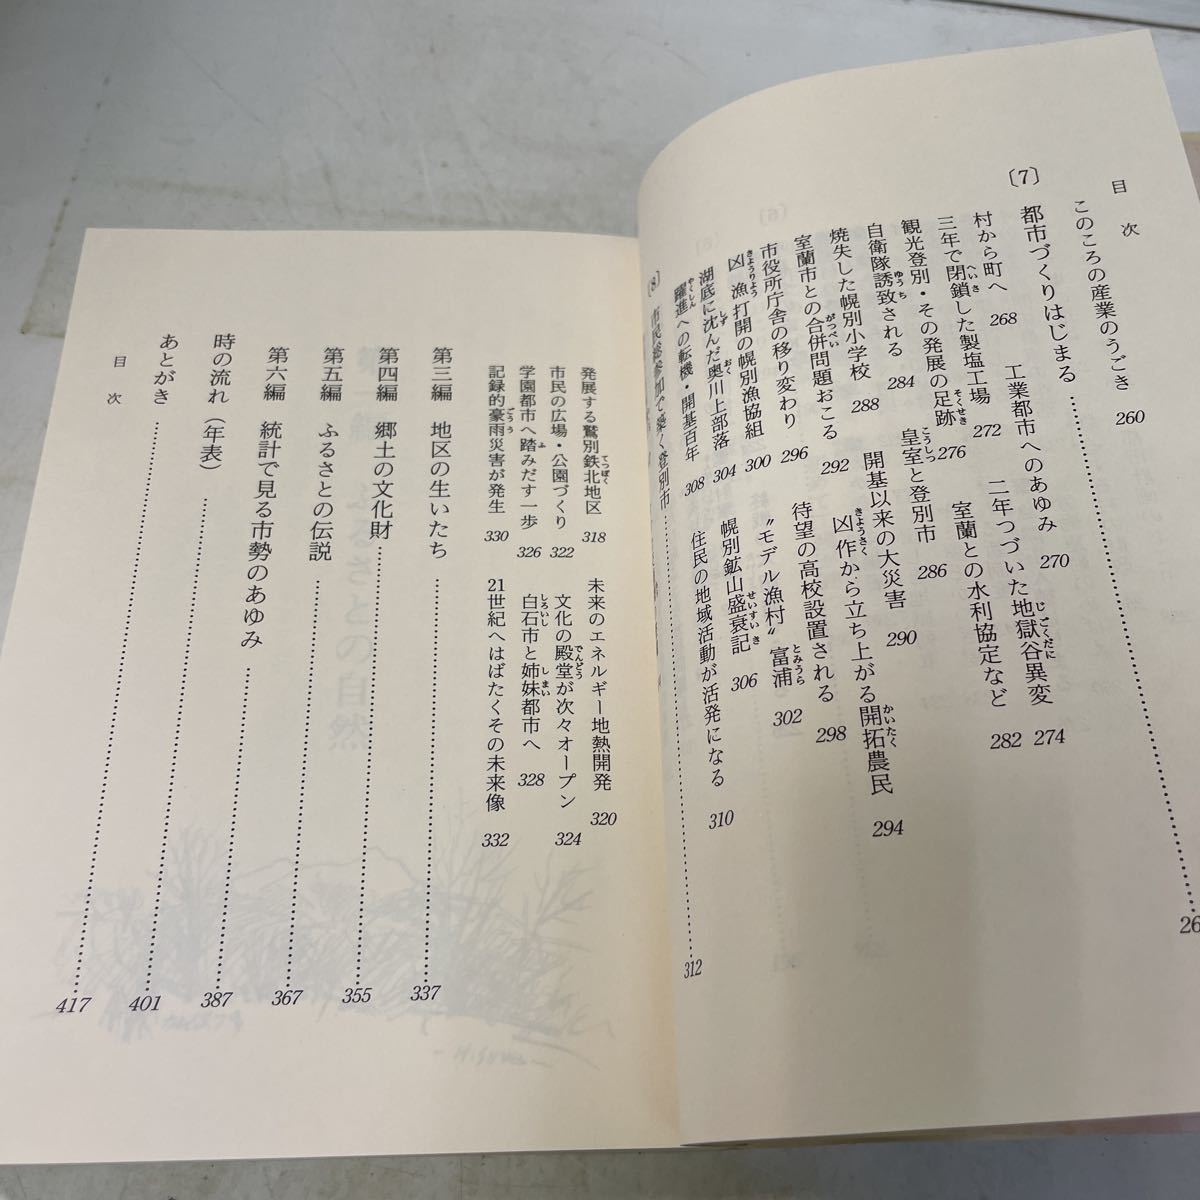 目次
このころの産業のうごき 260
〔7〕 都市づくりはじまる 26
村から町へ 268 工業都市へのあゆみ 270
三年で閉鎖した製塩工場 272 二年つづいた地獄谷異変 274
観光登別・その発展の足跡 276 室蘭との水利協定など 282
自衛隊誘致される 284 皇室と登別市 286
焼失した幌別小学校 288 開基以来の大災害 290
室蘭市との合併問題おこる 292 凶作から立ち上がる開拓農民 294
市役所庁舎の移り変わり 296 待望の高校設置される 298
凶漁打開の幌別漁協組 300 “モデル漁村”富浦 302
湖底に沈んだ奥川上部落 304 幌別鉱山盛衰記 306
躍進への転機・開基百年 308 住民の地域活動が活発になる 310
〔8〕 市民総参加で築く登別市 312
発展する鷲別鉄北地区 318 未来のエネルギー地熱開発 320
市民の広場・公園づくり 322 文化の殿堂が次々オープン 324
学園都市へ踏みだす一歩 326 白石市と姉妹都市へ 328
記録的豪雨災害が発生 330 21世紀へはばたくその未来像 332
第三編 地区の生いたち 337
第四編 郷土の文化財 355
第五編 ふるさとの伝説 367
第六編 統計で見る市勢のあゆみ 387
時の流れ（年表） 401
あとがき 417
目次